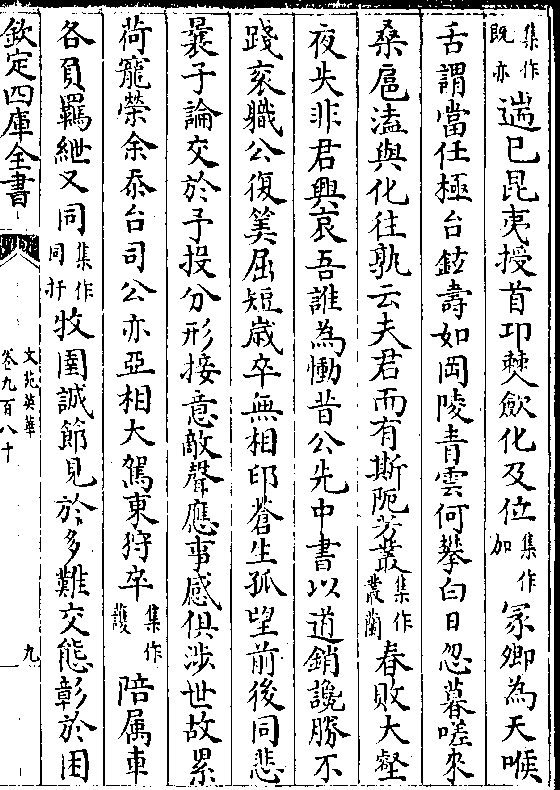 集作既亦遄已昆夷授首邛僰歛化及位集作加冢卿為天喉
舌謂當任極台鉉壽如岡陵青雲何攀白日忽暮嗟來
桑扈溘與化往孰云夫君而有斯阨芳叢集作叢蘭春敗大壑
夜失非君興哀吾誰為慟昔公先中書以道銷讒勝不
踐衮職公復筭屈短歲卒無相印蒼生孤望前後同悲
曩子論交於予投分形接意敵聲應事感俱涉世故累
荷寵榮余忝台司公亦亞相大駕東狩卒集作護陪属車
各負羈紲又同集作同扞牧圉誠節見於多難交態彰於困
欽定四庫全書
文苑英華
卷九百八十
九